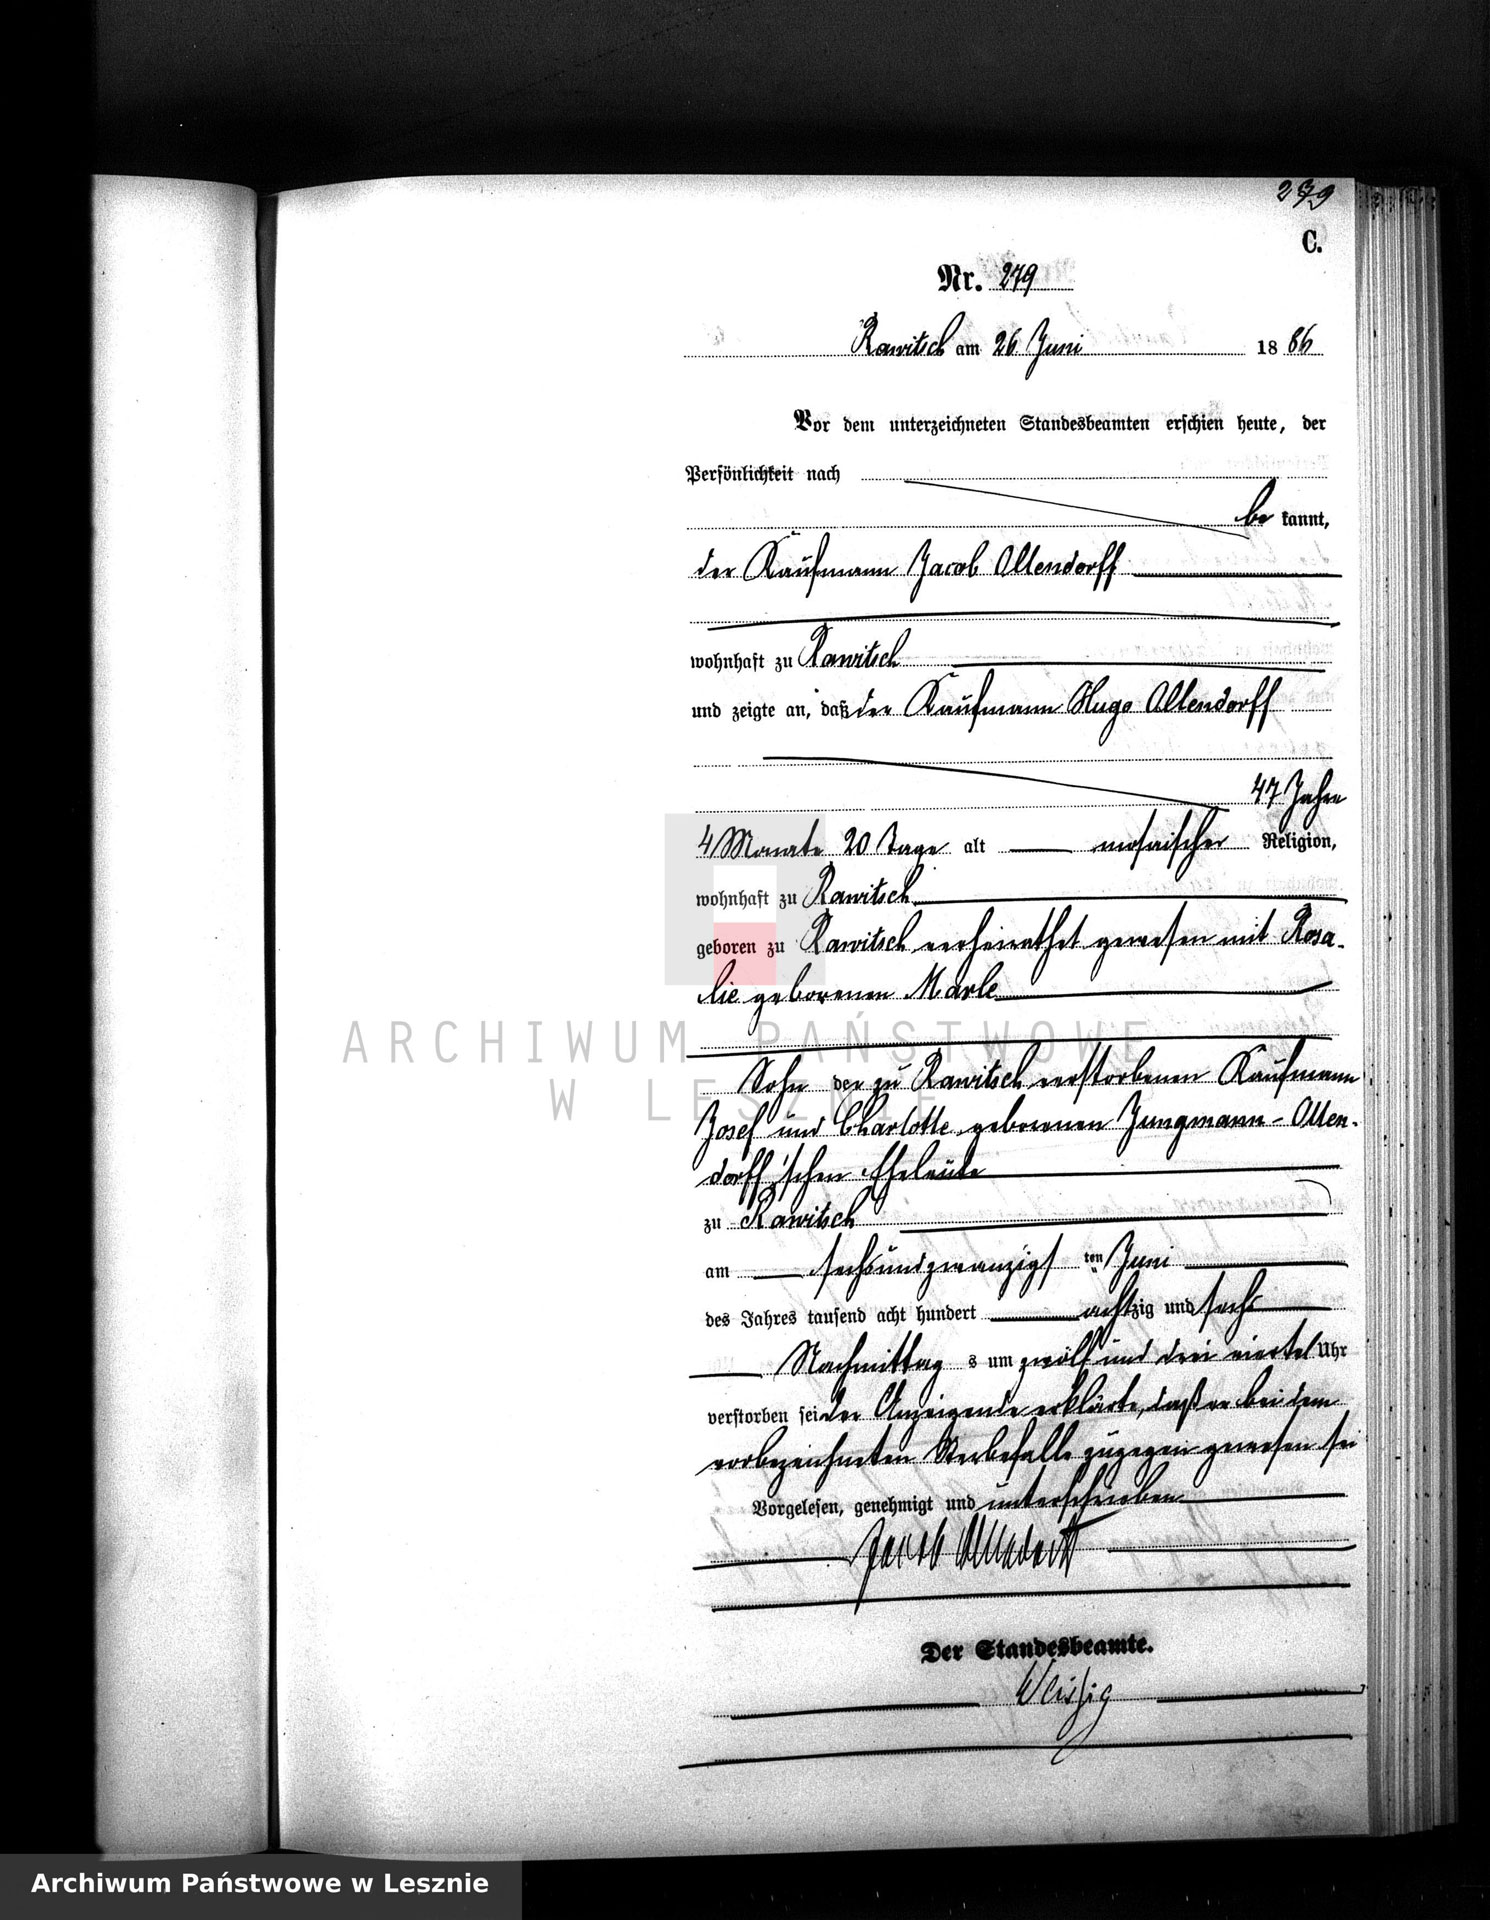 279
C.
Nr. 279
Rawitsch am 26 Juni 1886
Vor dem unterzeichneten Standesbeamten erschien heute, der
Persönlichkeit nach
be kannt,
der Kaufmann Jacob Ollendorff
wohnhaft zu Rawitsch
und zeigte an, daß der Kaufmann Hugo Ollendorff
47 Jahre
4 Monate 20 Tage alt mosaischer Religion,
wohnhaft zu Rawitsch
geboren zu Rawitsch verheirathet gewesen mit Rosa-
lie geborenen Marle
Sohn der zu Rawitsch verstorbenen Kaufmann
Josef und Charlotte geborenen Jungmann - Ollen-
dorff'schen Eheleute
zu Rawitsch
am sechsundzwanzigsten Juni
des Jahres tausend acht hundert achtzig und sechs
Nachmittags um zwölf und drei viertel Uhr
verstorben sei der Anzeigende erklärte, daß er bei dem
vorbezeichneten Sterbefalle zugegen gewesen sei
Vorgelesen, genehmigt und unterschrieben
Jacob Ollendorff
Der Standesbeamte.
Weissig
ARCHIWUM PAŃSTWOWE
W LESZNIE
Archiwum Państwowe w Lesznie